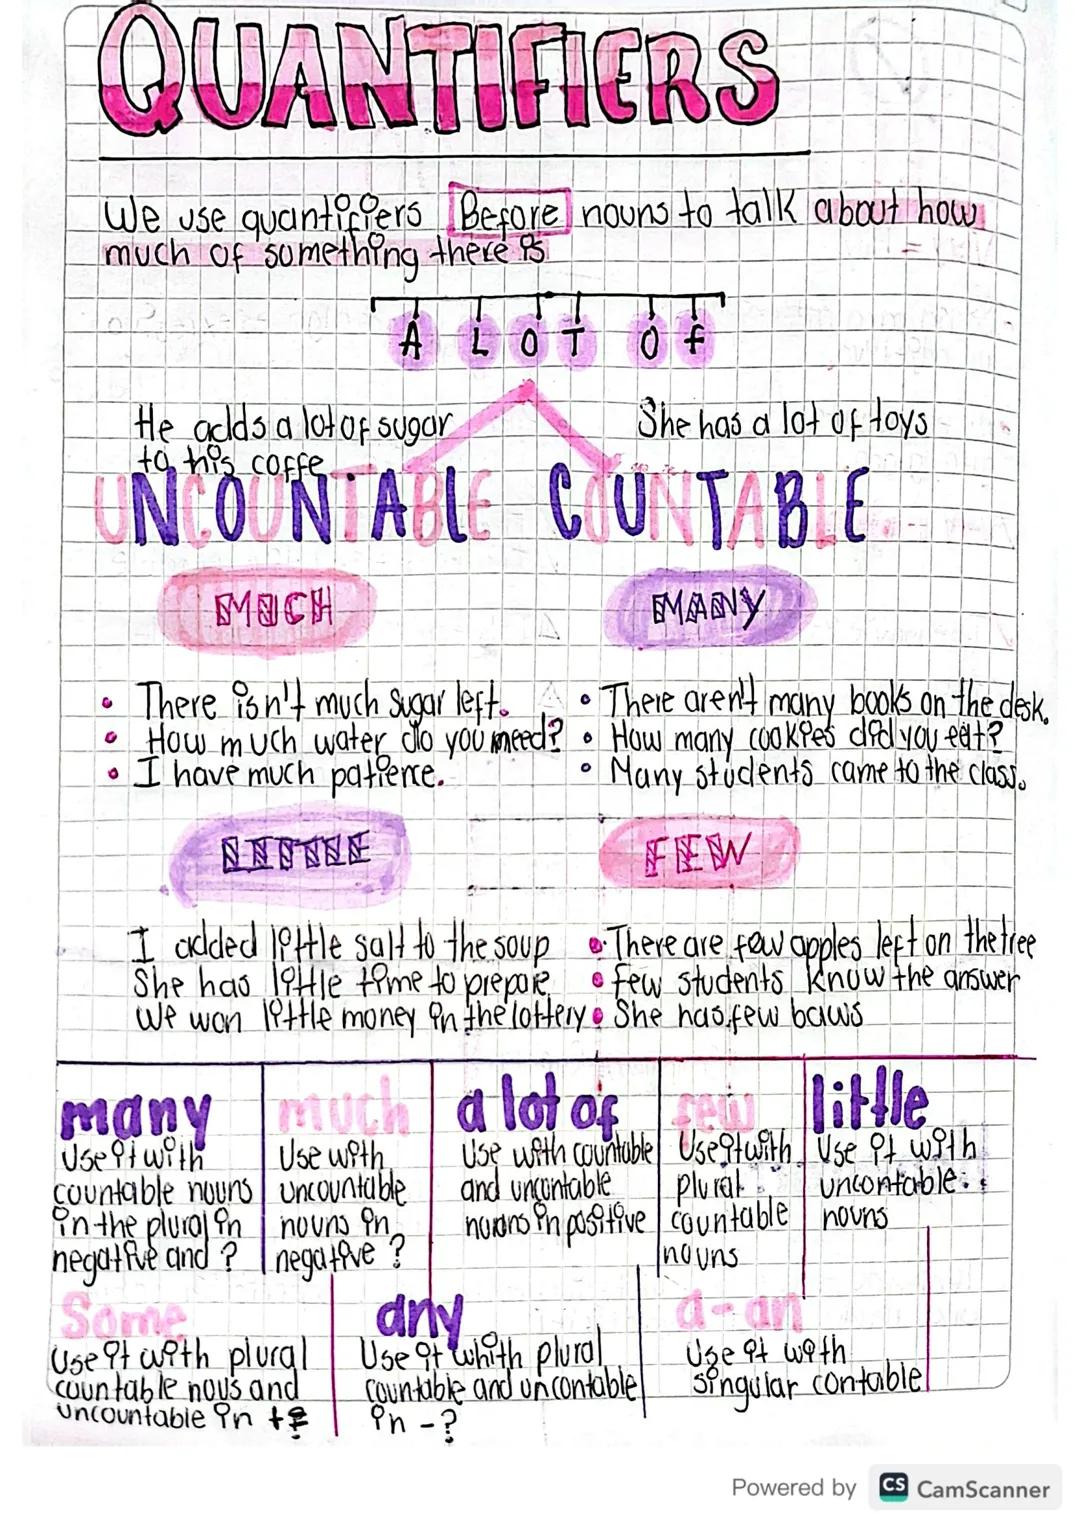 QUANTIFIERS
We use quantifiers Before nouns to talk about how
much of something there is
A LOT OF
He adds a lot of sugar
to his coffe
She has a lot of toys
UNCOUNTABLE COUNTABLE
MUCH
MANY
• There isn't much sugar left.
• How much water do you need?
• I have much patience.
• There aren't many books on the desk.
• How many cookies did you eat?
• Many students came to the class.
LITTLE
FEW
I added little salt to the soup
She has little time to prepare
We won little money in the lottery
• There are few apples left on the tree
• Few students know the answer
• She has few
many
Use it with
countable nouns
in the plural in
negative and ?
much
Use with
uncountable
nouns in
negative ?
a lot of
Use with countable
and uncontable
in positive
few
Use it with
plural
countable
nouns
little
Use it with
uncontable
nouns
Some
Use it with plural
countable nous and
uncountable in +
any
Use it whith plural
countable and uncontable
in - ?
a-an
Use it with
singular contable
Powered by CS CamScanner